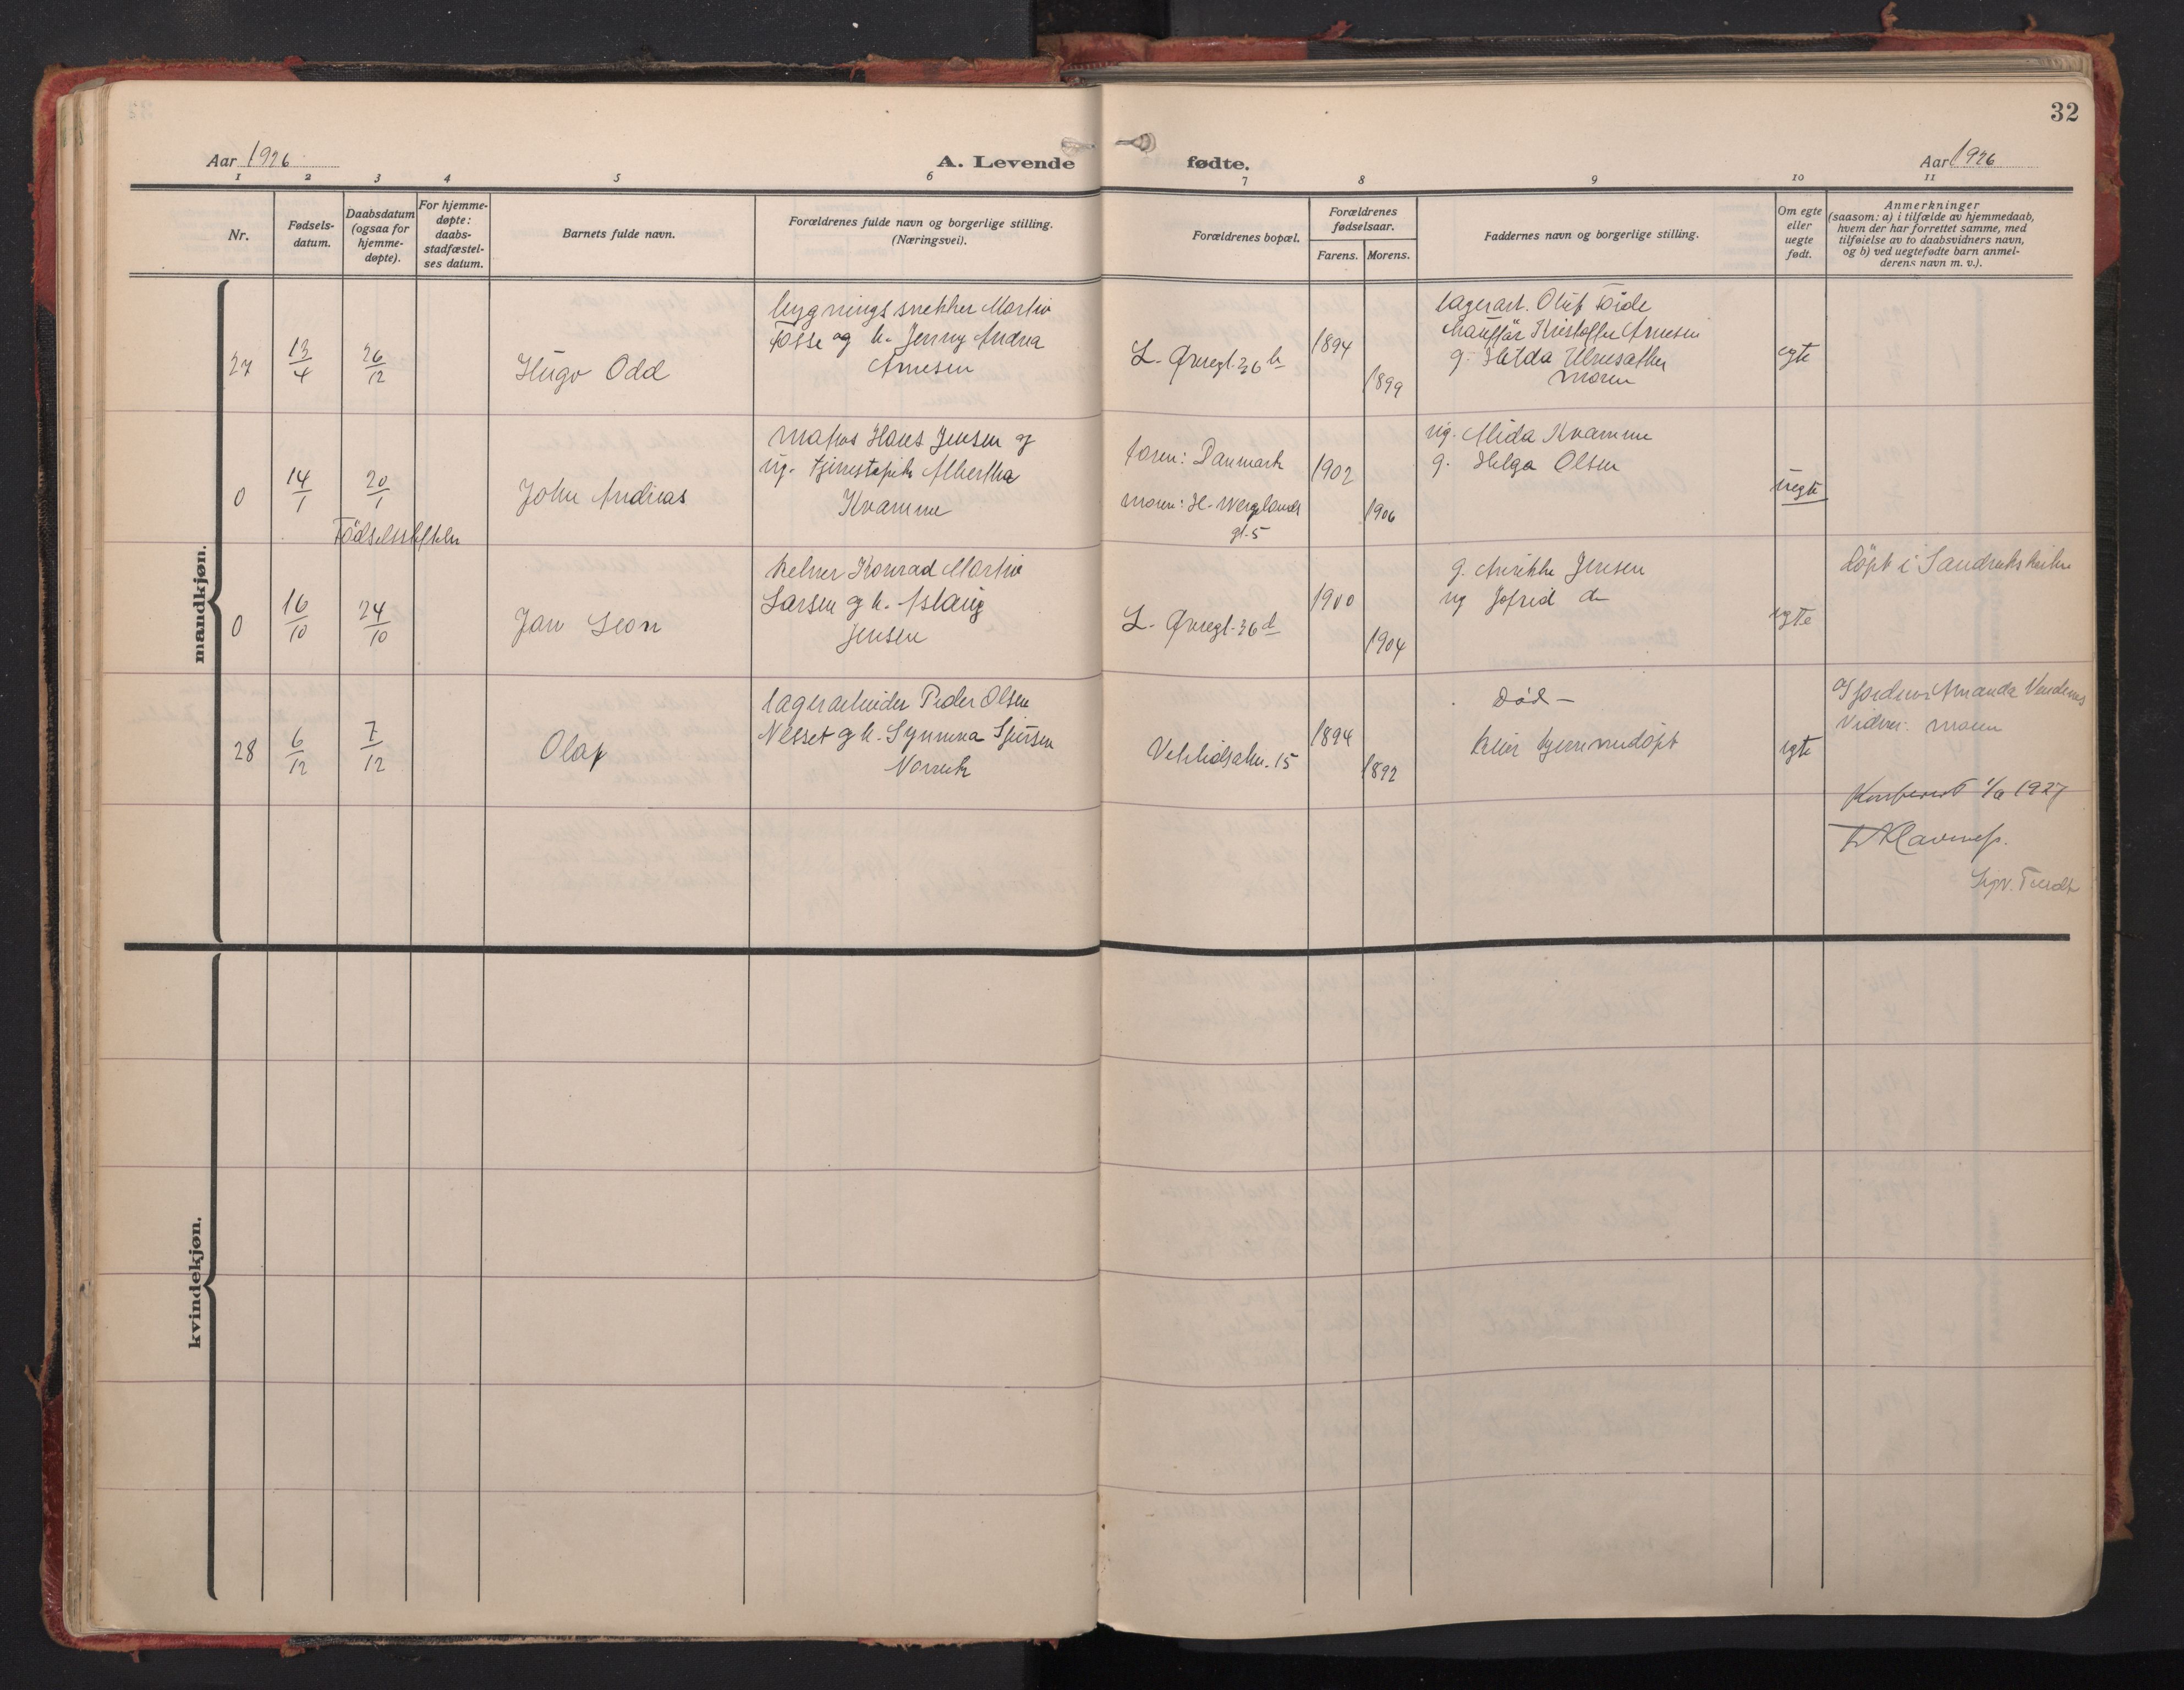 32
Aar 1926
A. Levende fødte.
Aar 1926
1 2 3 4 5 6 7 8 9 10 11
Nr.
Fødsels-
datum.
Daabsdatum
(ogsaa for
hjemme-
døpte).
For hjemme-
døpte:
daabs-
stadfæstel-
ses datum.
Barnets fulde navn.
Forældrenes fulde navn og borgerlige stilling.
(Næringsvei).
Forældrenes bopæl.
Forældrenes
fødselsaar.
Farens. Morens.
Faddernes navn og borgerlige stilling.
Om egte
eller
uegte
født.
Anmerkninger
(saasom: a) i tilfælde av hjemmedaab,
hvem der har forrettet samme, med
tilføielse av to daabsvidners navn,
og b) ved uegtefødte barn anmel-
derens navn m. v.).
mandkjøn.
27
13/4
26/12
Hugo Odd
bygningssnekker Martin
Fosse og h. Jenny Andrea
Arnesen
L. Øvregt. 36 b
1894
1899
lagerarb. Oluf
Kristoffer Arnesen
g. Hilda
moren
egte
0
14/1
20/1
Fødselsstiftelsen
John Andreas
matros Hans Jensen og
ug. Albertha
Kvamme
faren: Danmark
moren: H. Wergelands
gt. 5
1902
1906
ug. Alida Kvamme
g. Helga Olsen
uegte
0
16/10
24/10
Jan Leon
kelner Konrad Martin
Larsen og h. Aslaug
Jensen
L. Øvregt. 36 d
1900
1904
g. Jensen
ug Jofrid do
egte
døpt i Sandvikskirken
28
6/12
7/12
Olaf
lagerarbeider Peder Olsen
Nesset og h. Synneva Sjursen
Norevik
15
1894
1892
Død -
blev hjemmedøpt
egte
Amanda
Vidner: moren
1927
kvindekjøn.